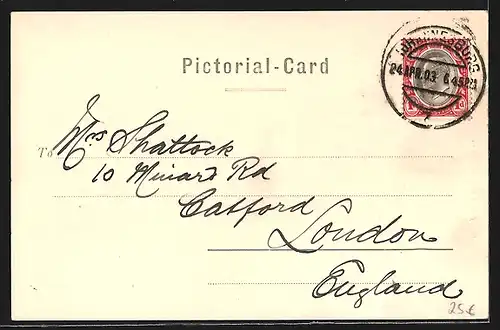 JOHANNESBURG
24 APR. 03 6.45 PM
7
Pictorial-Card
To Mrs Shattock
10 Minard Rd
Catford
London
England
25€